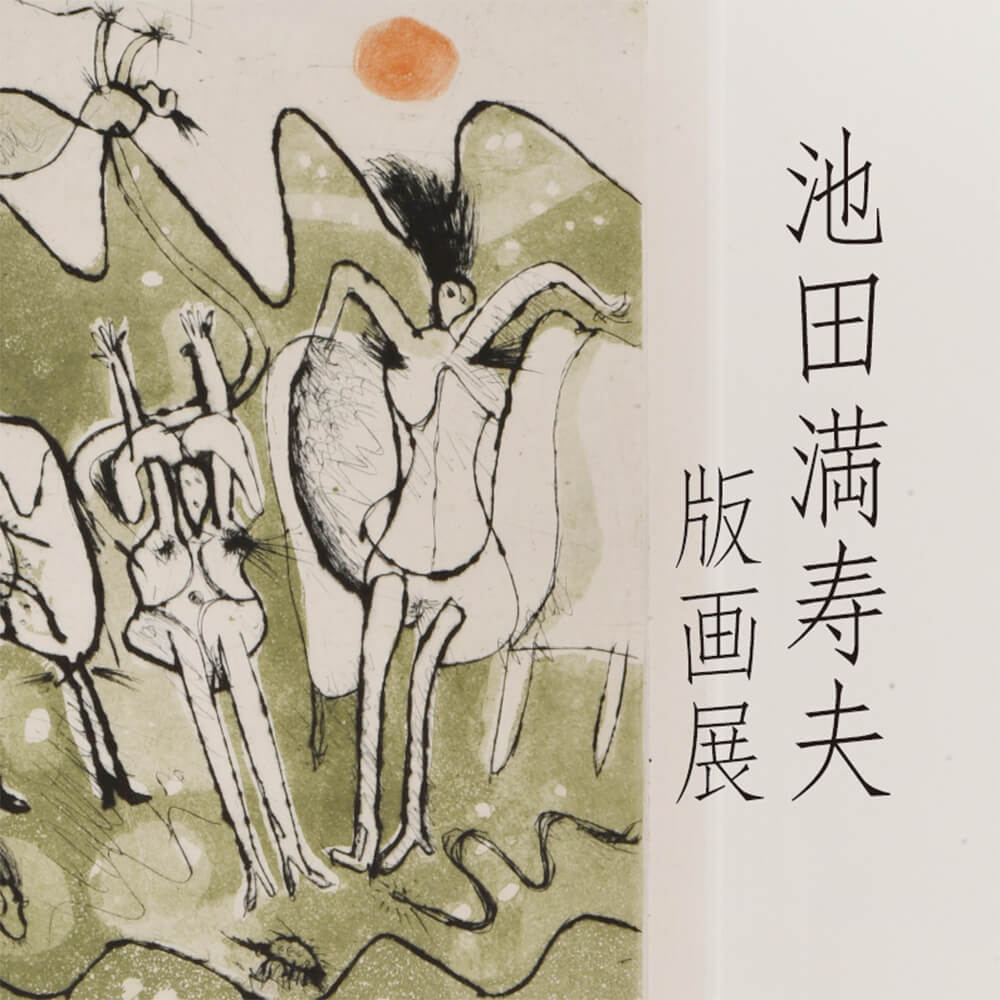 池田満寿夫
版画展